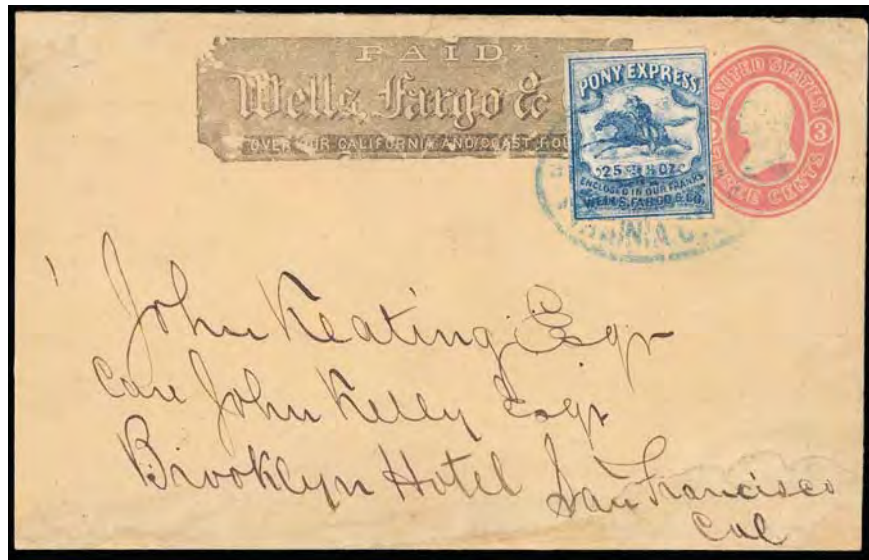 PAID
Wells, Fargo &
OVER OUR CALIFORNIA AND COAST ROU
PONY EXPRESS.
25 ½ OZ
ENCLOSED IN OUR FRANKS
WELLS, FARGO & CO.
UNITED STATES
3
THREE CENTS
John Keating Esqr
Care John Kelly Esqr
Brooklyn Hotel San Francisco
Cal